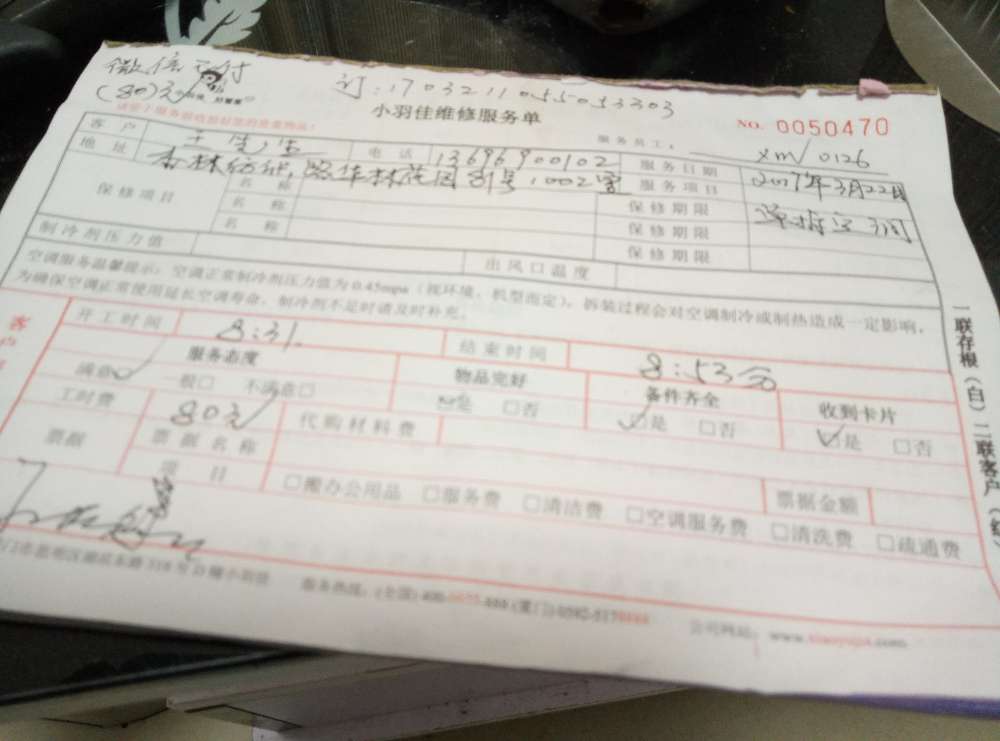 微信支付
(80)元
订:1703211055053303
小羽佳维修服务单
NO. 0050470
服务员工: xm/0126
客户 王先生 电话 13696900102 服务日期 2017年3月22日
地址 路华林花园 1002室 服务项目
保修项目 名称 保修期限
名称 保修期限
名称 保修期限
制冷剂压力值 出风口温度
空调服务温馨提示:空调正常制冷剂压力值为0.45mpa(视环境、机型而定),拆装过程会对空调制冷或制热造成一定影响,
为确保空调正常使用延长空调寿命,制冷剂不足时请及时补充。
开工时间 8:31 结束时间 8:53分
服务态度 物品完好 备件齐全 收到卡片
满意 一般□ 不满意□ 是 □否 是 □否 是 □否
工时费 80元 代购材料费
票据 票据名称 票据金额
项目 □搬办公用品 □服务费 □清洁费 □空调服务费 □清洗费 □疏通费
服务热线:(全国)400 (厦门)0592-517
公司网址:www. .com
一联存根(白)二联客户(红)
客户